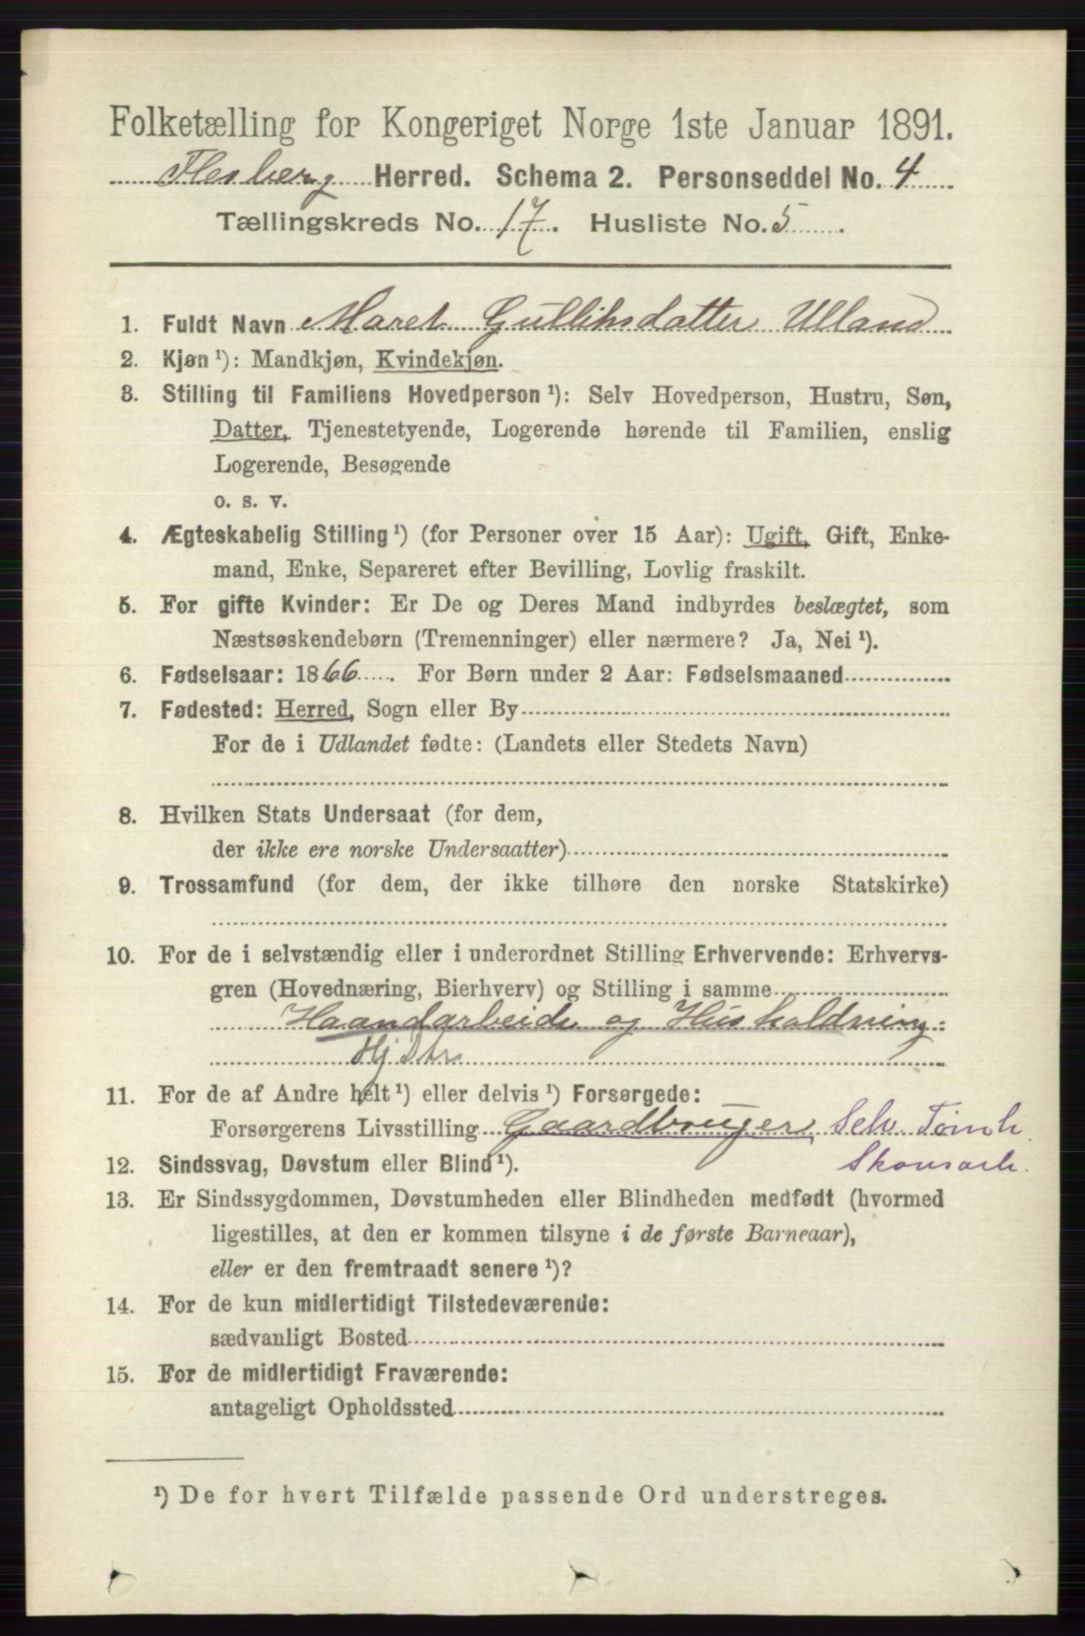 Folketælling for Kongeriget Norge 1ste Januar 1891.
Flesberg Herred. Schema 2. Personseddel No. 4
Tællingskreds No. 17. Husliste No. 5.
1. Fuldt Navn Maret Gulliksdatter Ulland
2. Kjøn ¹): Mandkjøn, Kvindekjøn.
3. Stilling til Familiens Hovedperson ¹): Selv Hovedperson, Hustru, Søn,
Datter, Tjenestetyende, Logerende hørende til Familien, enslig
Logerende, Besøgende
o. s. v.
4. Ægteskabelig Stilling ¹) (for Personer over 15 Aar): Ugift, Gift, Enke-
mand, Enke, Separeret efter Bevilling, Lovlig fraskilt.
5. For gifte Kvinder: Er De og Deres Mand indbyrdes beslægtet, som
Næstsøskendebørn (Tremenninger) eller nærmere? Ja, Nei ¹).
6. Fødselsaar: 1866. For Børn under 2 Aar: Fødselsmaaned
7. Fødested: Herred, Sogn eller By
For de i Udlandet fødte: (Landets eller Stedets Navn)
8. Hvilken Stats Undersaat (for dem,
der ikke ere norske Undersaatter)
9. Trossamfund (for dem, der ikke tilhøre den norske Statskirke)
10. For de i selvstændig eller i underordnet Stilling Erhvervende: Erhvervs-
gren (Hovednæring, Bierhverv) og Stilling i samme
Haandarbeide og Husholdning.
Hj Dtr
11. For de af Andre helt ¹) eller delvis ¹) Forsørgede:
Forsørgerens Livsstilling Gaardbruger, Selv. Tømh.
12. Sindssvag, Døvstum eller Blind ¹). Skovsarb.
13. Er Sindssygdommen, Døvstumheden eller Blindheden medfødt (hvormed
ligestilles, at den er kommen tilsyne i de første Barneaar),
eller er den fremtraadt senere ¹)?
14. For de kun midlertidigt Tilstedeværende:
sædvanligt Bosted
15. For de midlertidigt Fraværende:
antageligt Opholdssted
¹) De for hvert Tilfælde passende Ord understreges.